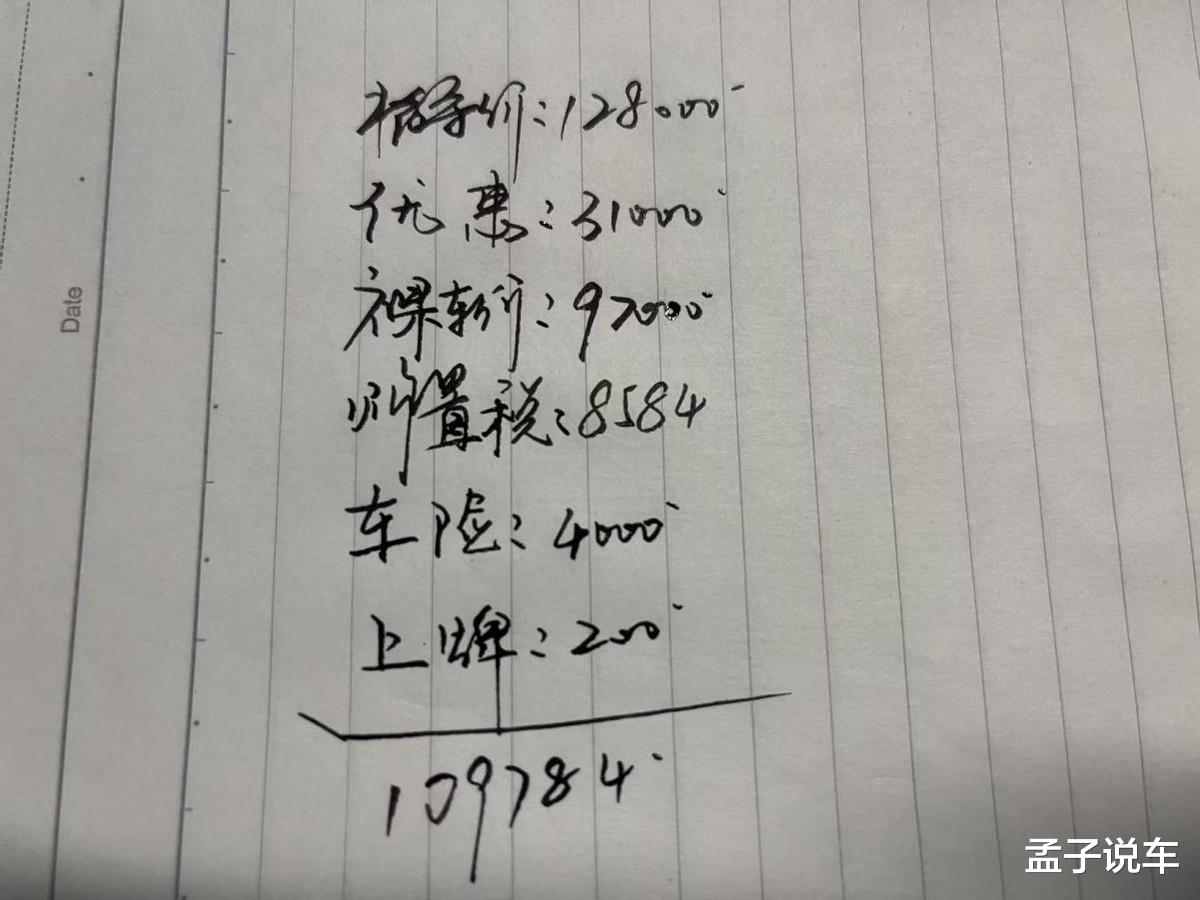 指导价:128000
优惠:31000
裸车价:97000
购置税:8584
车险:4000
上牌:200
109784
Date
孟子说车